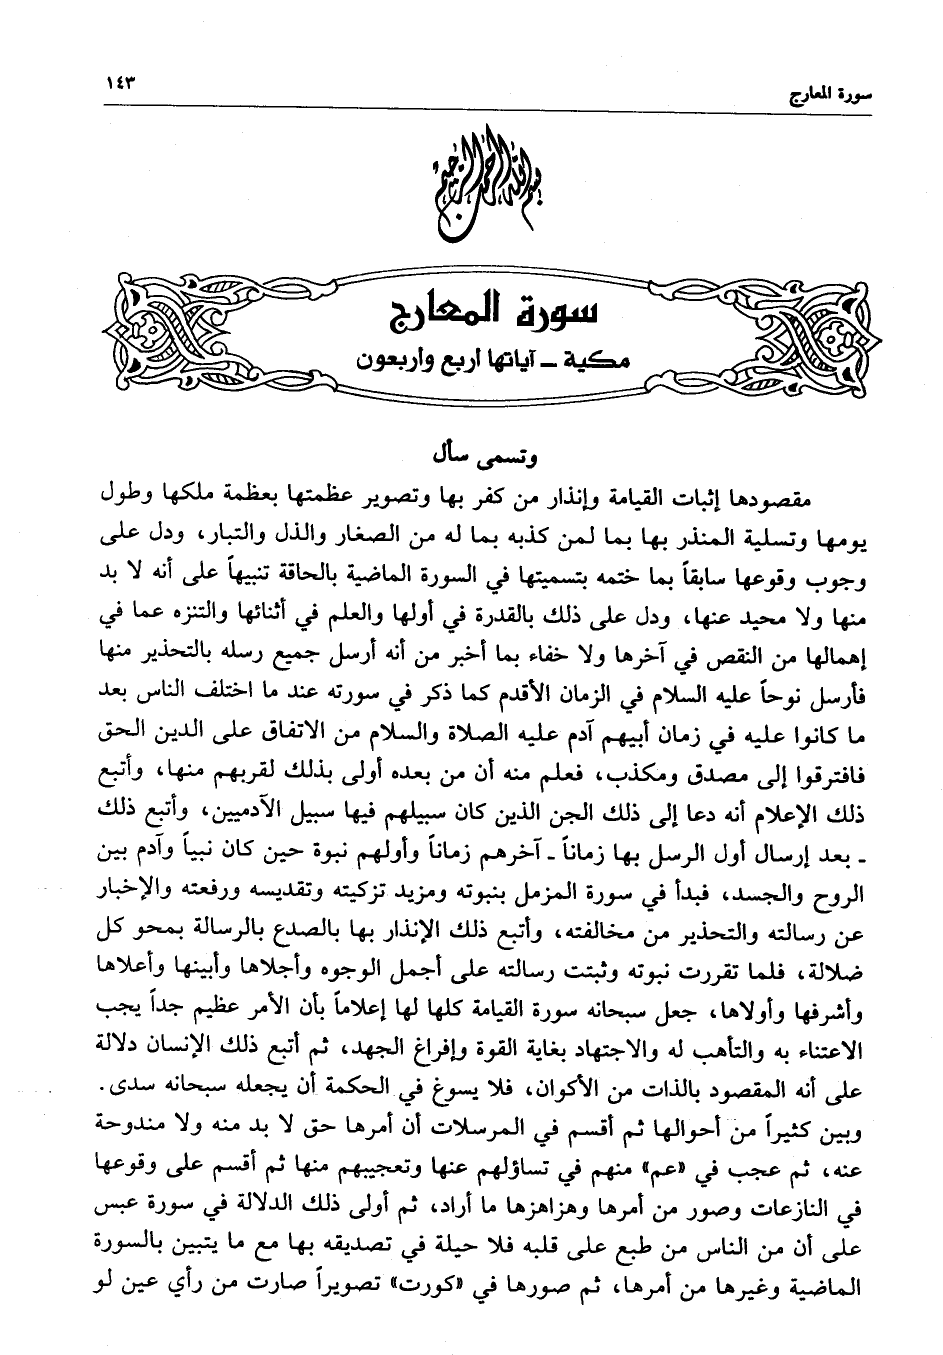 سورة المعارج
١٤٣
بسم الله الرحمن الرحيم
سورة المعارج
مكية ـ آياتها أربع وأربعون
وتسمى سأل
مقصودها إثبات القيامة وإنذار من كفر بها وتصوير عظمتها بعظمة ملكها وطول
يومها وتسلية المنذر بها بما لمن كذبه بما له من الصغار والذل والتبار، ودل على
وجوب وقوعها سابقاً بما ختمه بتسميتها في السورة الماضية بالحاقة تنبيهاً على أنه لا بد
منها ولا محيد عنها، ودل على ذلك بالقدرة في أولها والعلم في أثنائها والتنزه عما في
إهمالها من النقص في آخرها ولا خفاء بما أخبر من أنه أرسل جميع رسله بالتحذير منها
فأرسل نوحاً عليه السلام في الزمان الأقدم كما ذكر في سورته عند ما اختلف الناس بعد
ما كانوا عليه في زمان أبيهم آدم عليه الصلاة والسلام من الاتفاق على الدين الحق
فافترقوا إلى مصدق ومكذب، فعلم منه أن من بعده أولى بذلك لقربهم منها، وأتبع
ذلك الإعلام أنه دعا إلى ذلك الجن الذين كان سبيلهم فيها سبيل الآدميين، وأتبع ذلك
ـ بعد إرسال أول الرسل بها زماناً ـ آخرهم زماناً وأولهم نبوة حين كان نبياً وآدم بين
الروح والجسد، فبدأ في سورة المزمل بنبوته ومزيد تزكيته وتقديسه ورفعته والإخبار
عن رسالته والتحذير من مخالفته، وأتبع ذلك الإنذار بها بالصدع بالرسالة بمحو كل
ضلالة، فلما تقررت نبوته وثبتت رسالته على أجمل الوجوه وأجلاها وأبينها وأعلاها
وأشرفها وأولاها، جعل سبحانه سورة القيامة كلها لها إعلاماً بأن الأمر عظيم جداً يجب
الاعتناء به والتأهب له والاجتهاد بغاية القوة وإفراغ الجهد، ثم أتبع ذلك الإنسان دلالة
على أنه المقصود بالذات من الأكوان، فلا يسوغ في الحكمة أن يجعله سبحانه سدى.
وبين كثيراً من أحوالها ثم أقسم في المرسلات أن أمرها حق لا بد منه ولا مندوحة
عنه، ثم عجب في «عم» منهم في تساؤلهم عنها وتعجيبهم منها ثم أقسم على وقوعها
في النازعات وصور من أمرها وهزاهزها ما أراد، ثم أولى ذلك الدلالة في سورة عبس
على أن من الناس من طبع على قلبه فلا حيلة في تصديقه بها مع ما يتبين بالسورة
الماضية وغيرها من أمرها، ثم صورها في «كورت» تصويراً صارت من رأي عين لو